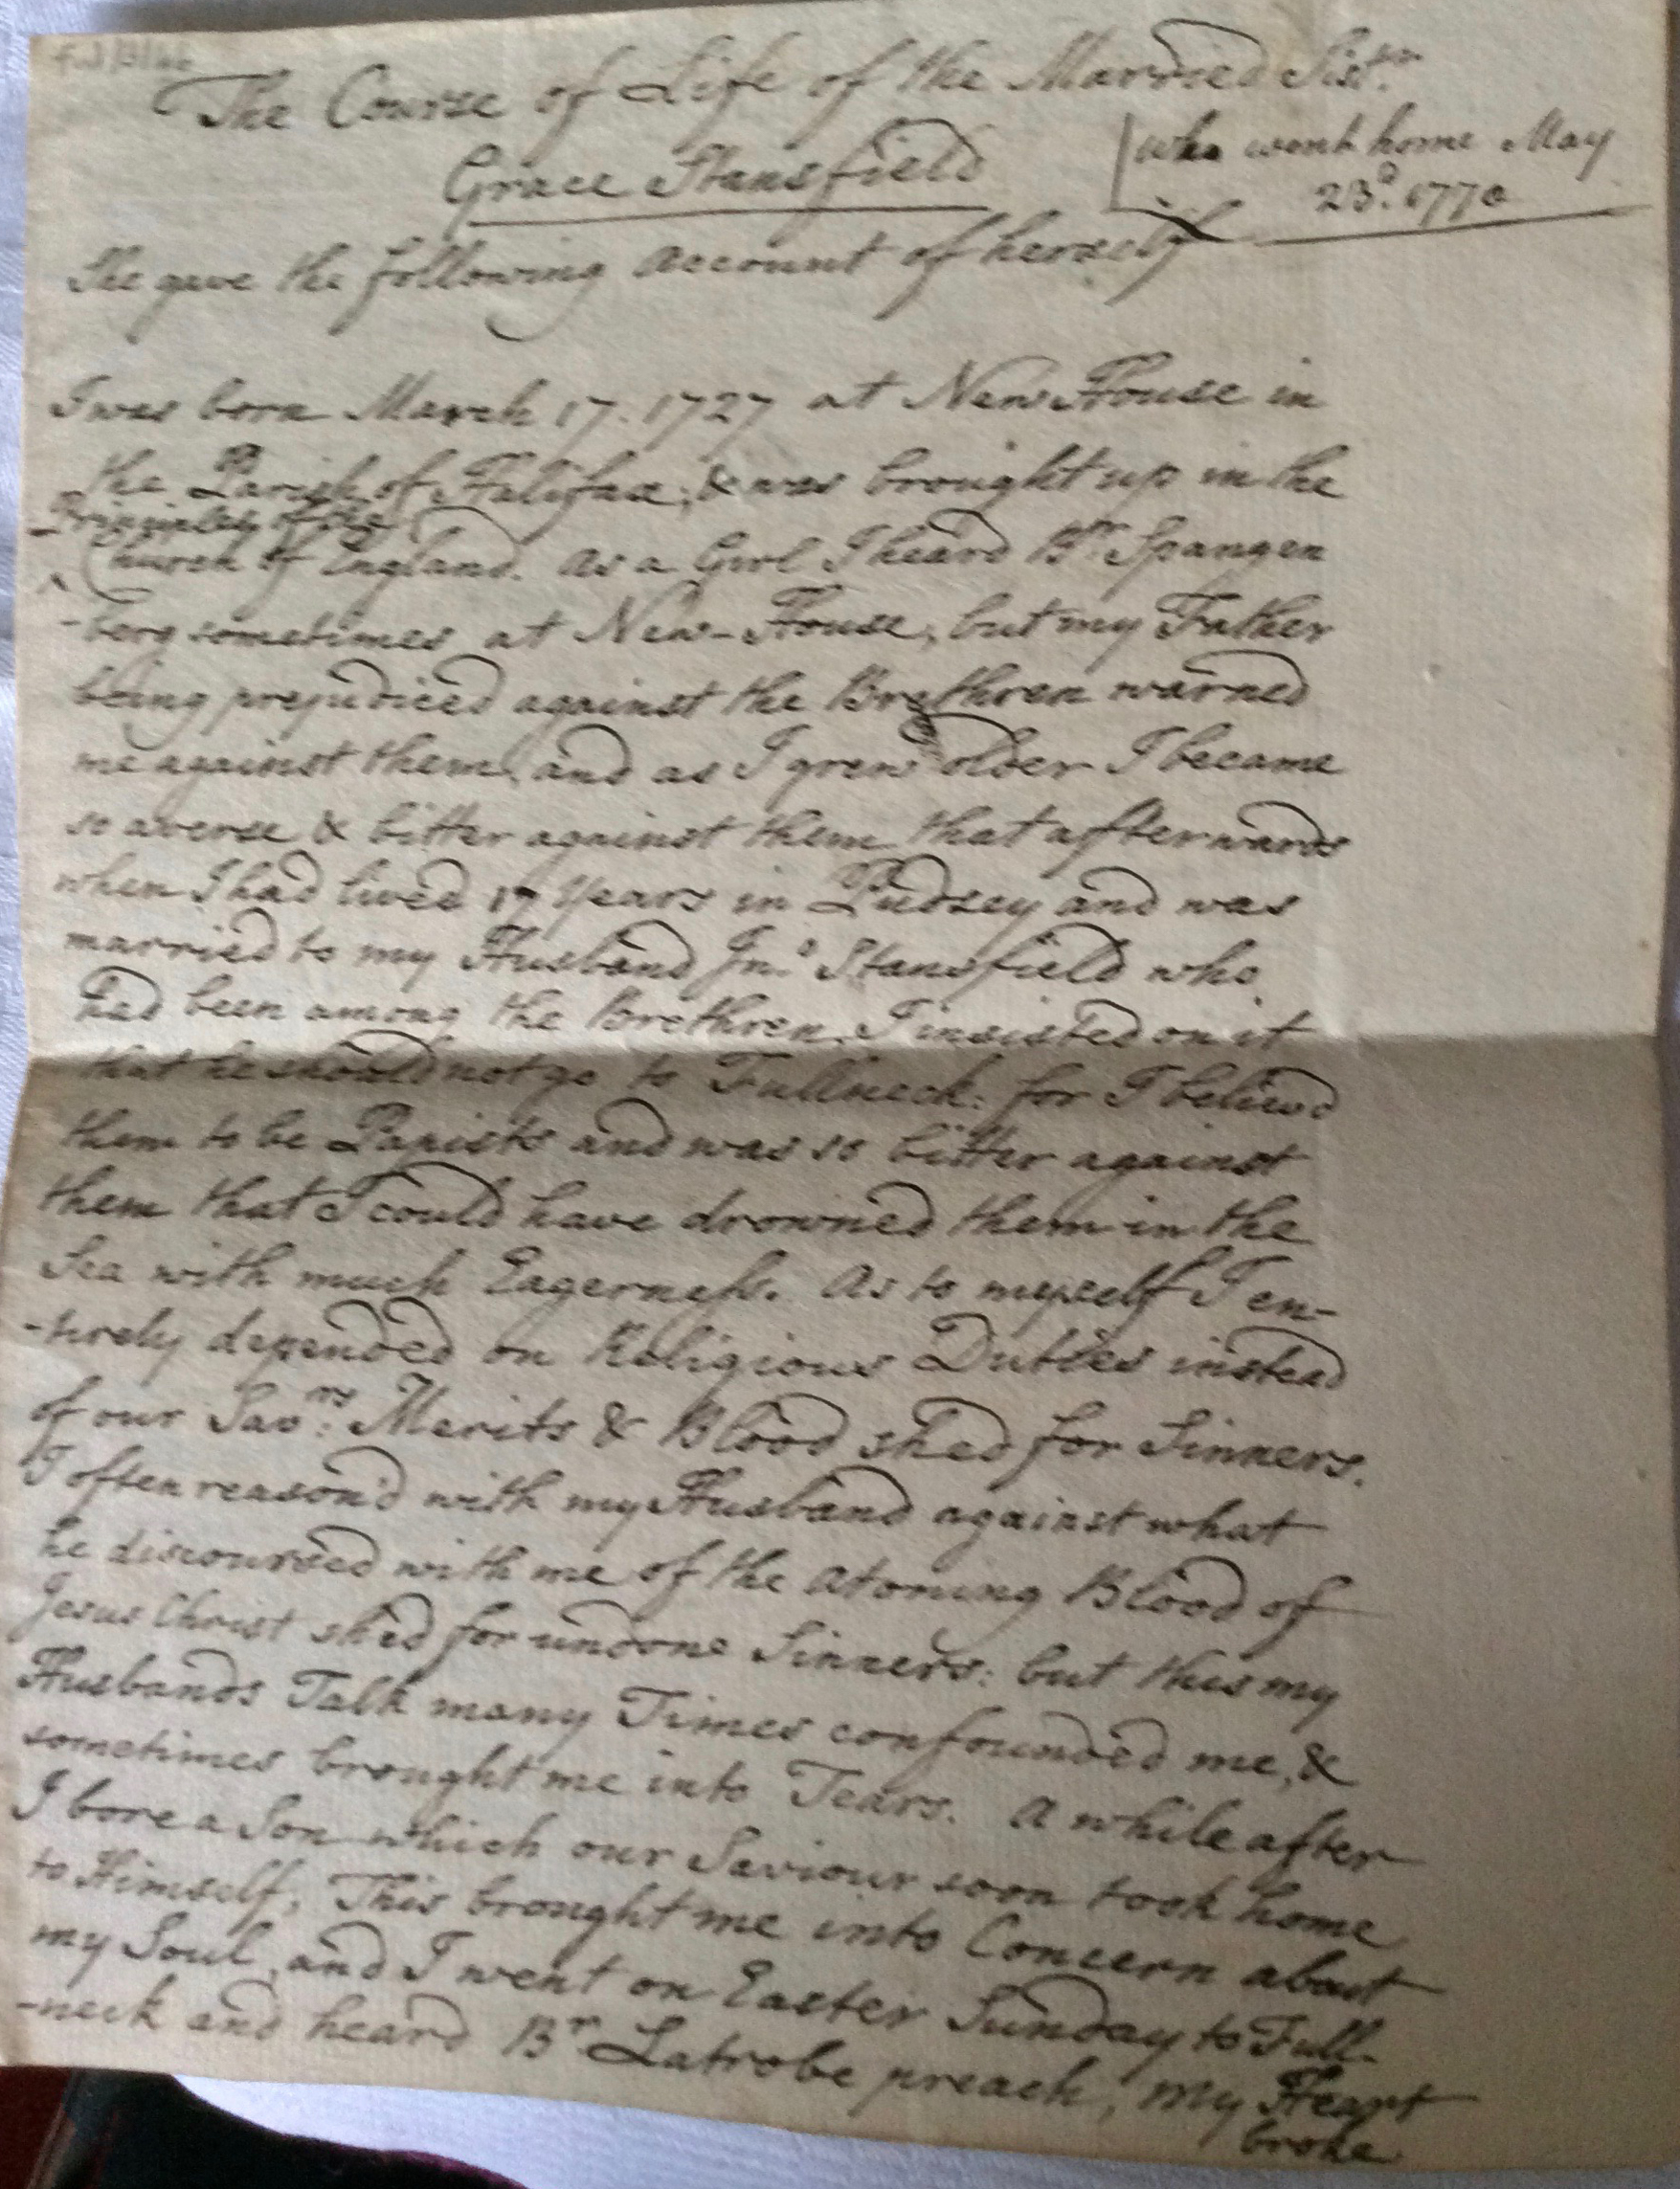 The Course of Life of the Married Sistr.
Grace Stansfield
who went home May
23d. 1770
She gave the following Account of herself
I was born March 17. 1727 at New House in
the Parish of Halifax, & was brought up in the
Principles of the
Church of England. As a Girl I heard Br Spangen
-berg sometimes at New-House, but my Father
being prejudiced against the Brethren warned
me against them, and as I grew older I became
so averse & bitter against them that afterwards
when I had lived 17 Years in Pudsey and was
married to my Husband Jno. Stansfield who
had been among the Brethren, I insisted on it
that he should not go to Fullneck: for I believd
them to be Papists and was so bitter against
them that I could have drowned them in the
Sea with much Eagerness. As to myself I en-
-tirely depended on Religious Duties instead
of our Savrs: Merits & Blood shed for Sinners.
I often reason'd with my Husband against what
he discoursed with me of the Atoning Blood of
Jesus Christ shed for undone Sinners: but this my
Husbands Talk many Times confounded me, &
sometimes brought me into Tears. A while after
I bore a Son which our Saviour soon took home
to Himself; This brought me into Concern about
my Soul, and I went on Easter Sunday to Full-
-neck and heard Br Latrobe preach, my Heart
broke